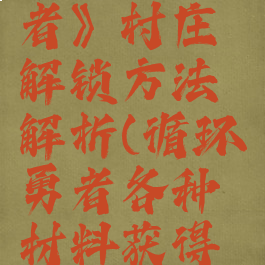 者》村庄
解锁方法
解析(循环
勇者各种
材料获得